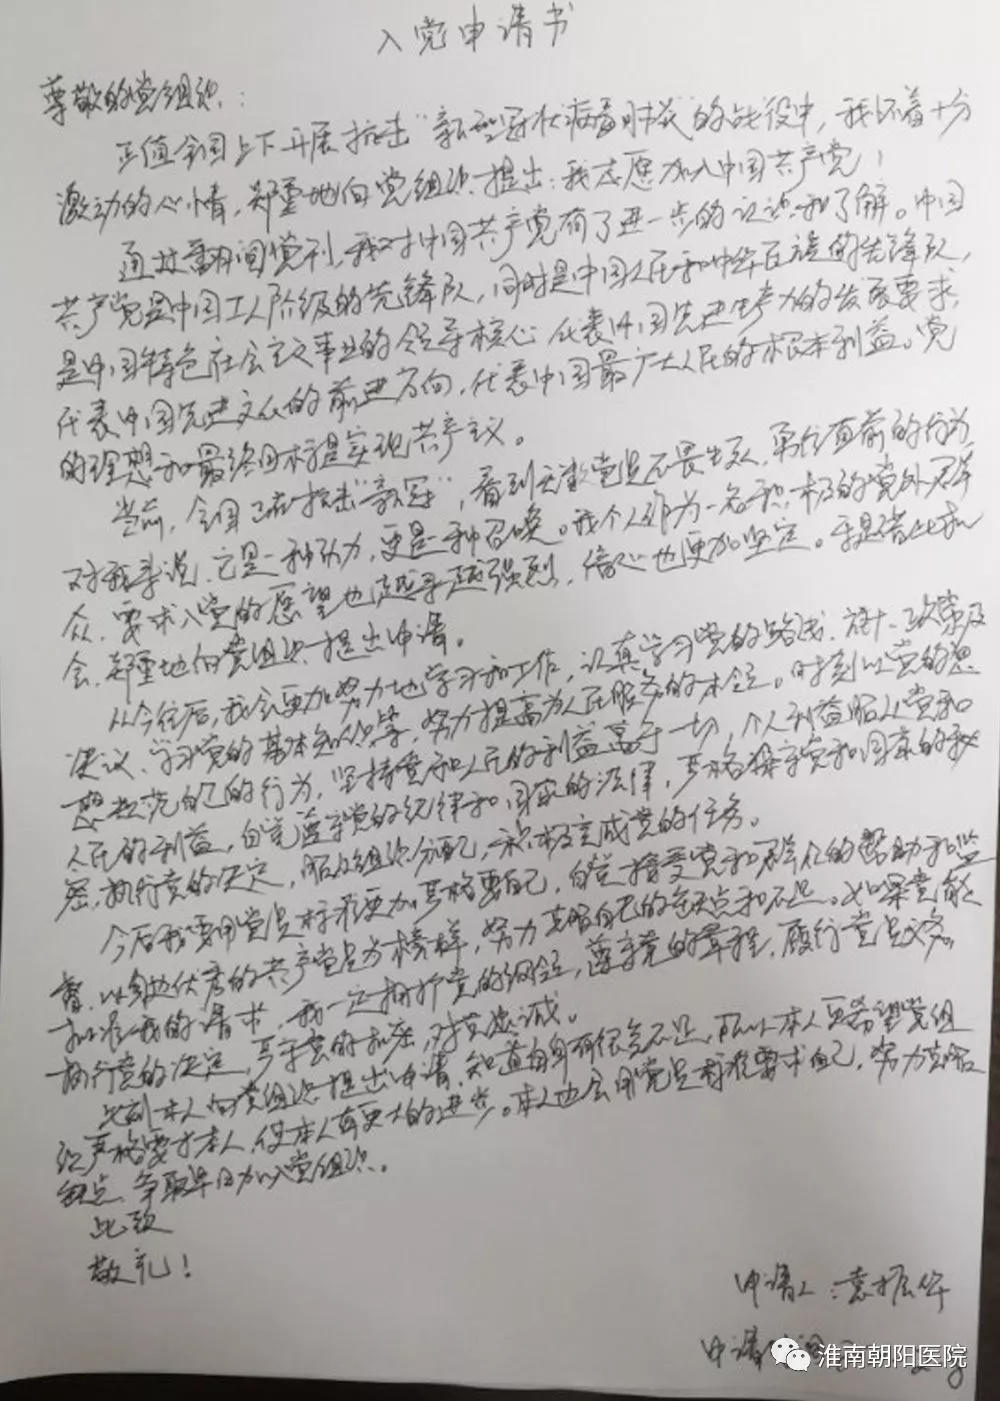 入党申请书
尊敬的党组织：
正值全国上下开展抗击“新型冠状病毒肺炎”的战役中，我怀着十分
激动的心情，郑重地向党组织提出：我志愿加入中国共产党！
通过翻阅党刊，我对中国共产党有了进一步的认识和了解。中国
共产党是中国工人阶级的先锋队，同时是中国人民和中华民族的先锋队，
是中国特色社会主义事业的领导核心，代表中国先进生产力的发展要求，
代表中国先进文化的前进方向，代表中国最广大人民的根本利益。党
的理想和最终目标是实现共产主义。
当前，全国正在抗击“新冠”，看到无数党员不畏生死，勇往直前的行为
对我来说，它是一种动力，更是一种召唤。我个人作为一名积极的党外群
众，要求入党的愿望也越来越强烈，信心也更加坚定。于是借此机
会，郑重地向党组织提出申请。
从今往后，我会更加努力地学习和工作，认真学习党的路线、方针、政策及
决议，学习党的基本知识等，努力提高为人民服务的本领。时刻以党的思
想规范自己的行为，坚持党和人民的利益高于一切，个人利益服从党和
人民的利益，自觉遵守党的纪律和国家的法律，严格保守党和国家的秘
密，执行党的决定，服从组织分配，积极完成党的任务。
今后我要用党员标准更加严格要自己，自觉接受党和群众的帮助和监
督，以身边优秀的共产党员为榜样，努力克服自己的缺点和不足。如果党能
批准我的请求，我一定拥护党的纲领，遵守党的章程，履行党员义务，
执行党的决定，严守党的纪律，对党忠诚。
此刻本人向党组织提出申请，知道自身有很多不足，所以本人更希望党组
织严格要求本人，使本人有更大的进步。本人也会用党员标准要求自己，努力克服
缺点，争取早日加入党组织。
此致
敬礼！
申请人：袁振华
申请时间
淮南朝阳医院